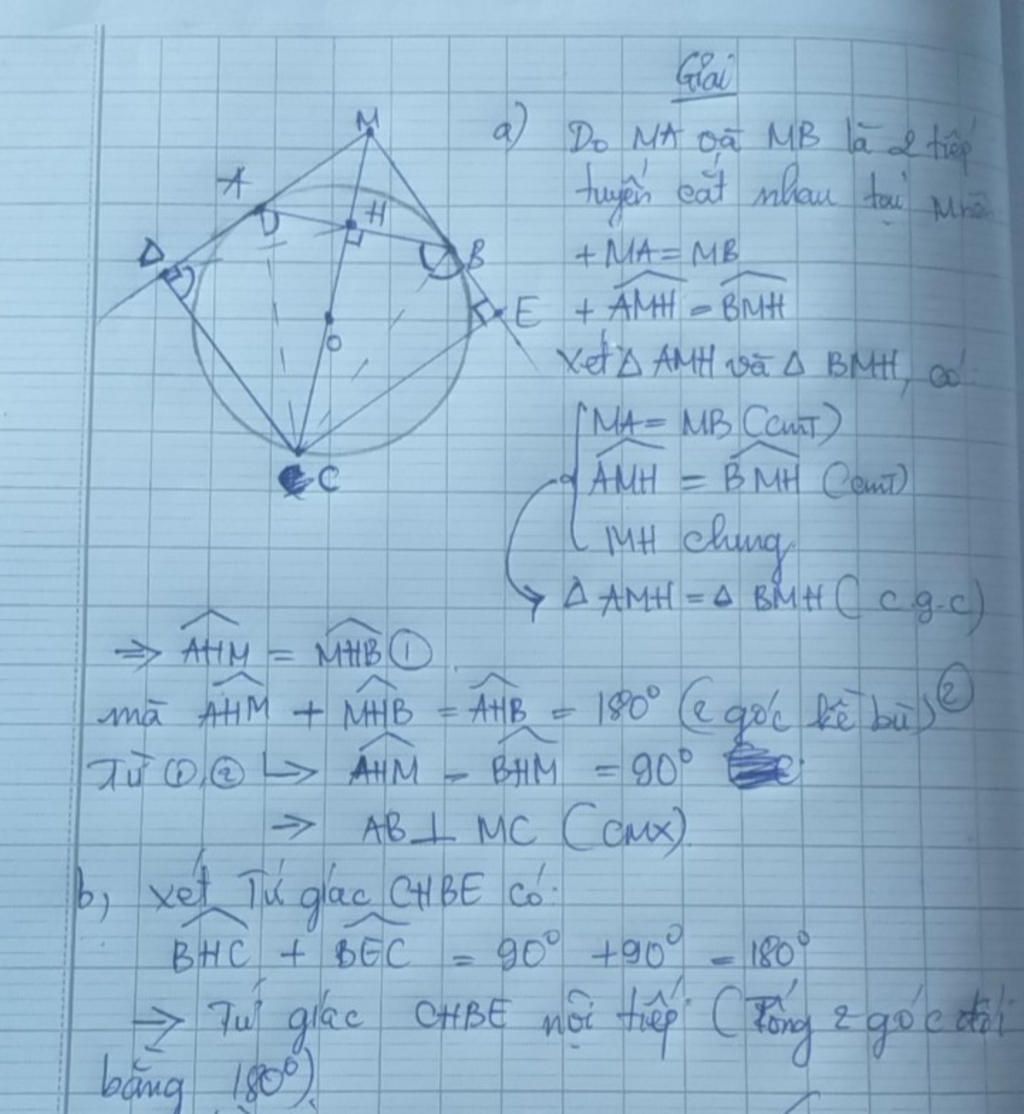 Giải
M
a) Do MA và MB là 2 tiếp
A
tuyến cắt nhau tại M nên
H
D
+ MA = MB
B
E
+ AMH = BMH
O
Xét Δ AMH và Δ BMH, có
MA = MB (cmT)
C
AMH = BMH (cmT)
MH chung
Δ AMH = Δ BMH (c.g.c)
⇒ AHM = MHB ①
mà AHM + MHB = AHB = 180° (2 góc kề bù) ②
Từ ①, ② ↳ AHM = BHM = 90°
⇒ AB ⊥ MC (CMX)
b, Xét Tứ giác CHBE có:
BHC + BEC = 90° + 90° = 180°
⇒ Tứ giác CHBE nội tiếp (Tổng 2 góc đối
bằng 180°).